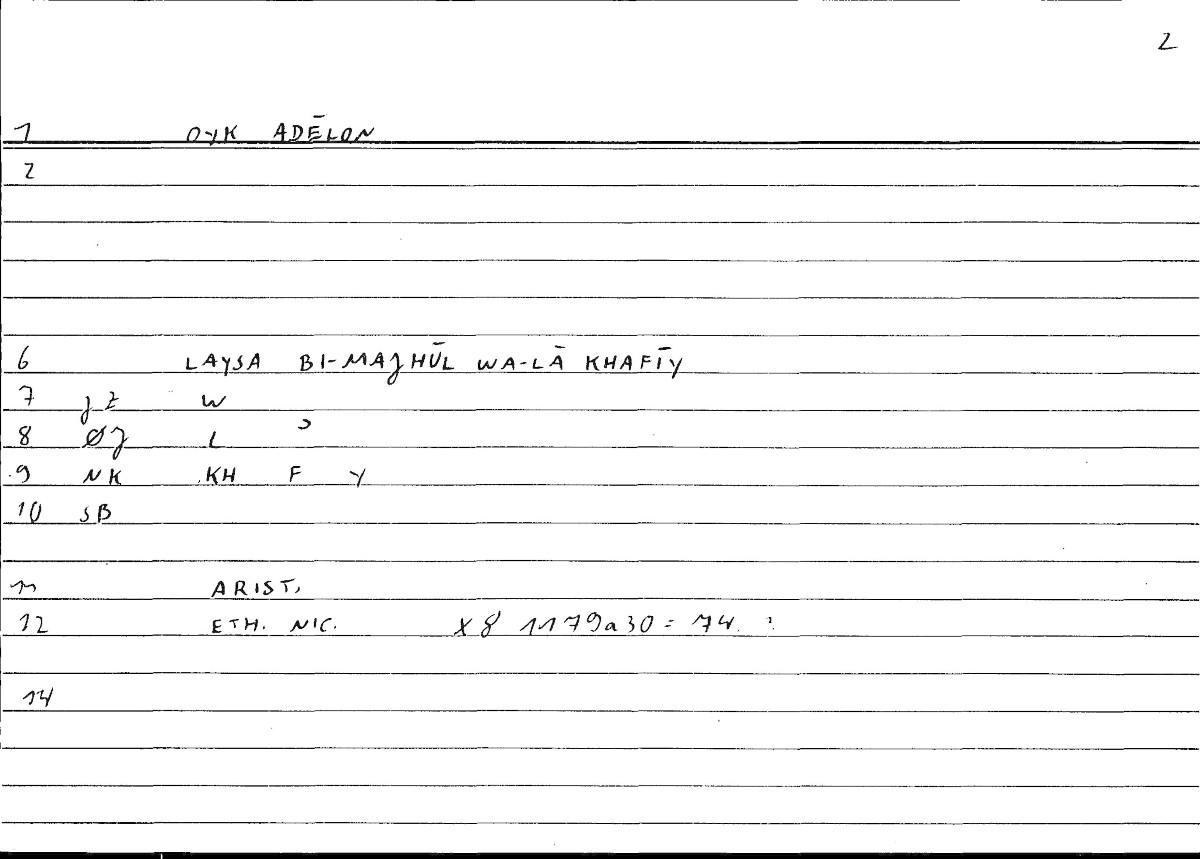 2
1 OYK ADĒLON
2
6 LAYSA BI-MAJHŪL WA-LĀ KHAFĪY
7 JZ W
8 ØJ L ʾ
9 NK KH F Y
10 SB
11 ARIST.
12 ETH. NIC. X 8 1179a30 =
14